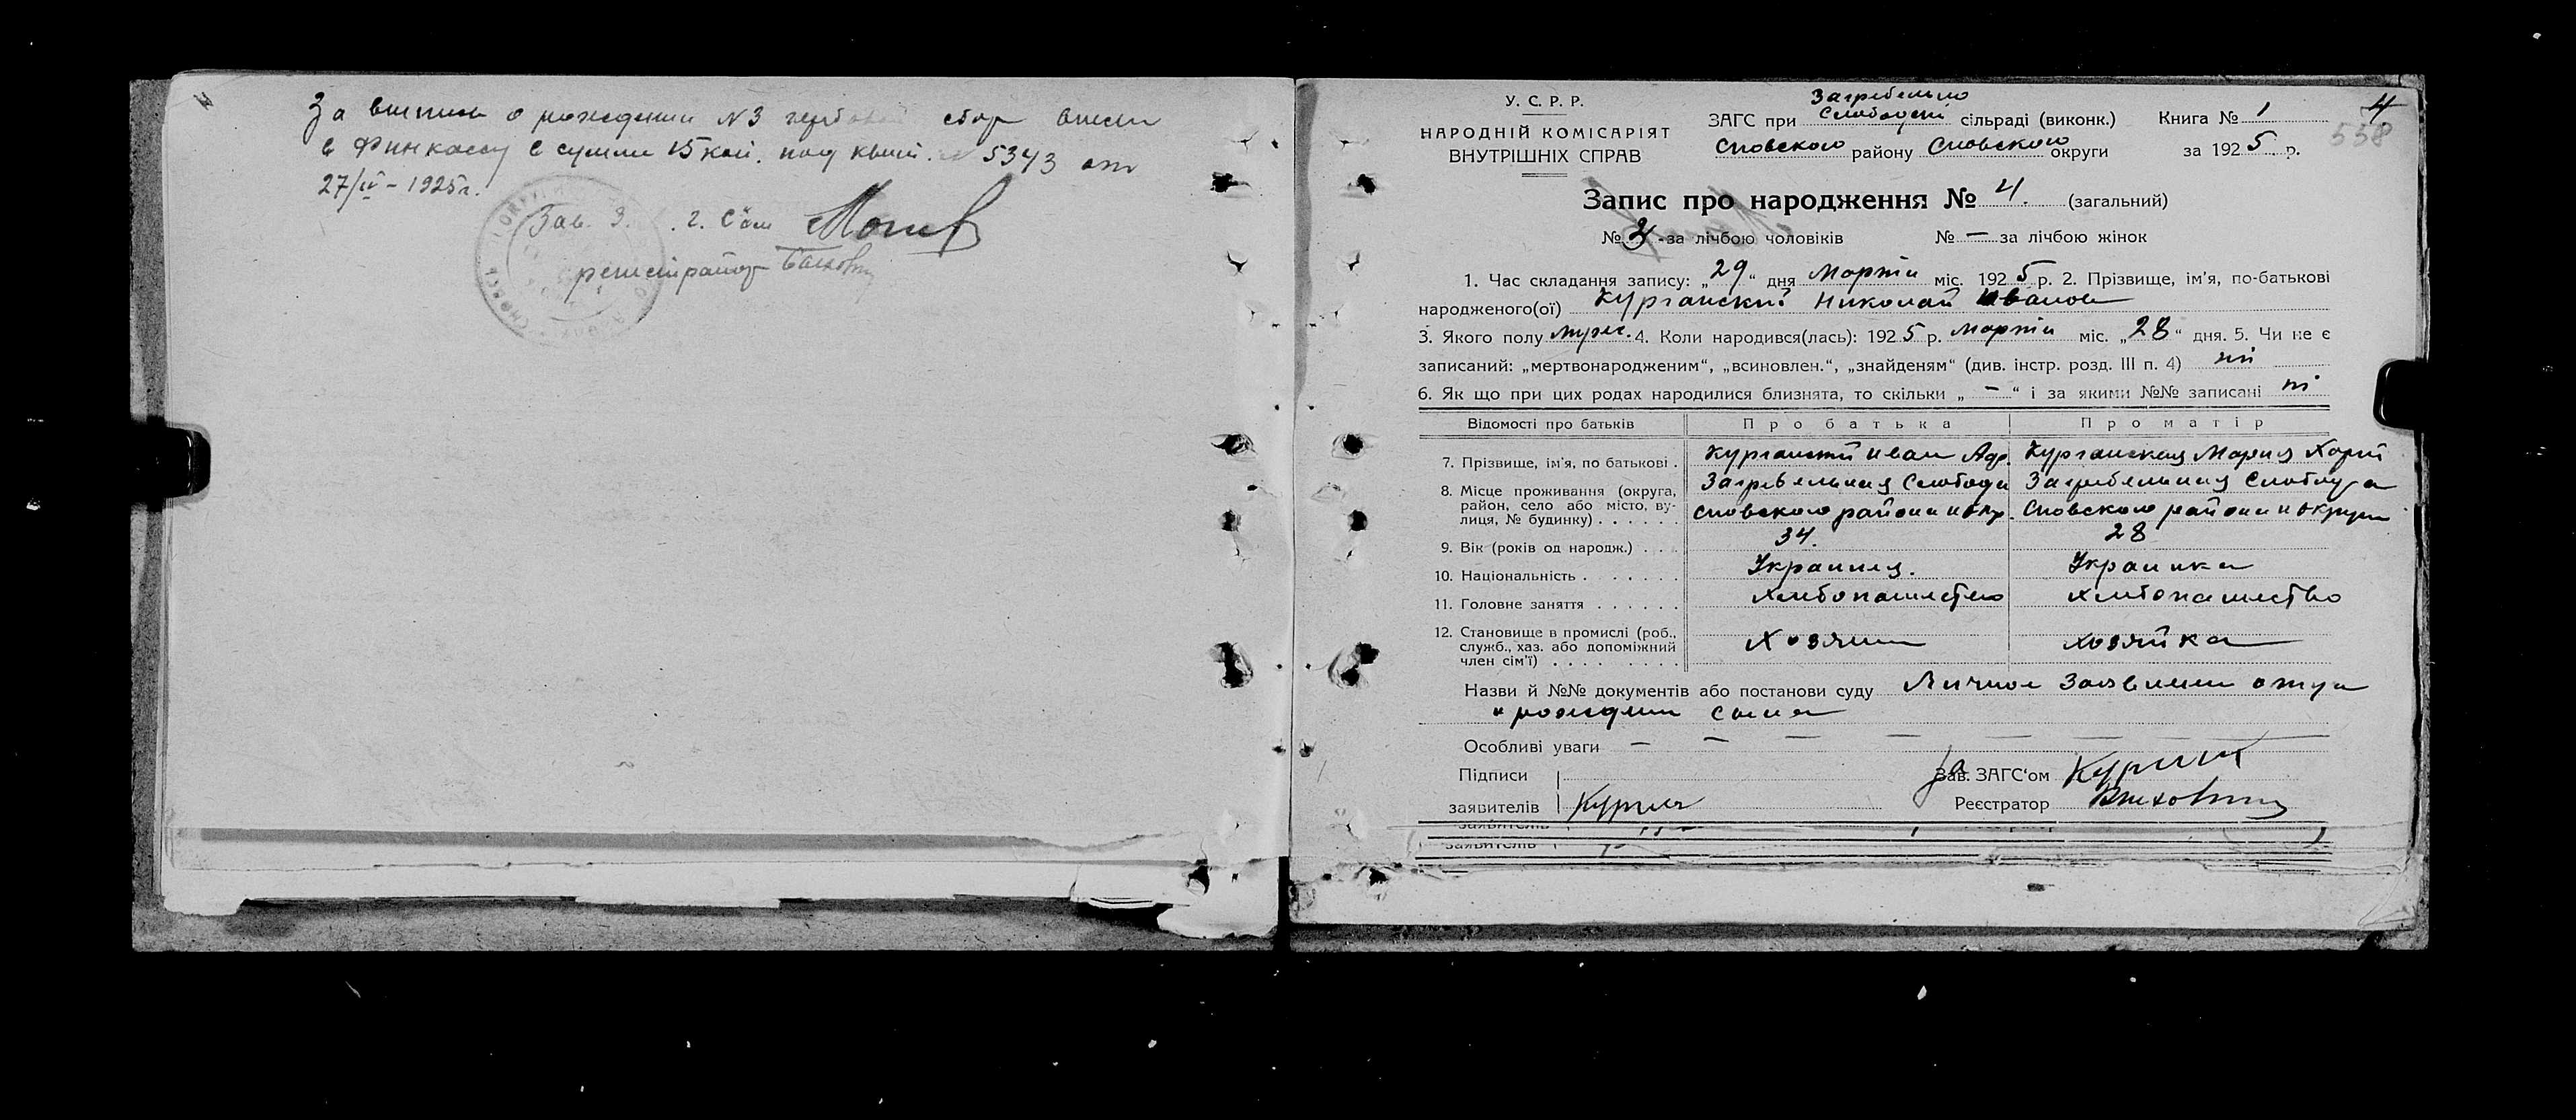 За выпись о рождении №3 гербовый сбор внесен
в Финкассу в сумме 15 коп. под квит. № 5343 от
27/IV – 1925 г.
Зав. З. .г. С'ом
регистратор
4
558
У. С. Р. Р.
НАРОДНІЙ КОМІСАРІЯТ
ВНУТРІШНІХ СПРАВ
Загребельно
ЗАГС при Слободской сільраді (виконк.) Книга № 1
Сновского району Сновского округи за 1925 р.
Запис про народження № 4. (загальний)
№ 3 за лічбою чоловіків № — за лічбою жінок
1. Час складання запису: „29“ дня Марта міс. 1925 р. 2. Прізвище, ім'я, по-батькові
народженого(ої) Курганский Николай Иванов
3. Якого полу муж. 4. Коли народився(лась): 1925 р. Марта міс. „28“ дня. 5. Чи не є
записаний: „мертвонародженим“, „всиновлен.“, „знайденям“ (див. інстр. розд. III п. 4) ні
6. Як що при цих родах народилися близнята, то скільки „–“ і за якими №№ записані ні
Відомості про батьків Про батька Про матір
7. Прізвище, ім'я, по батькові . Курганский Иван Курганская Мария Харит
8. Місце проживання (округа, Загребельная Слобода Загребельная Слобода
район, село або місто, ву-
лиця, № будинку) . . . . . . Сновского района и окр. Сновского района и округи
9. Вік (років од народж.) . . . 34. 28
10. Національність . . . . . . . Украинец. Украинка
11. Головне заняття . . . . . . Хлебопашество Хлебопашество
12. Становище в промислі (роб.,
служб., хаз. або допоміжний Хозяин хозяйка
член сім'ї) . . . . . . . .
Назви й №№ документів або постанови суду Личное Заявление отца
о рождении сына
Особливі уваги — — — — — —
Підписи За Зав. ЗАГС'ом
заявителів Реєстратор
заявителів
заявителів